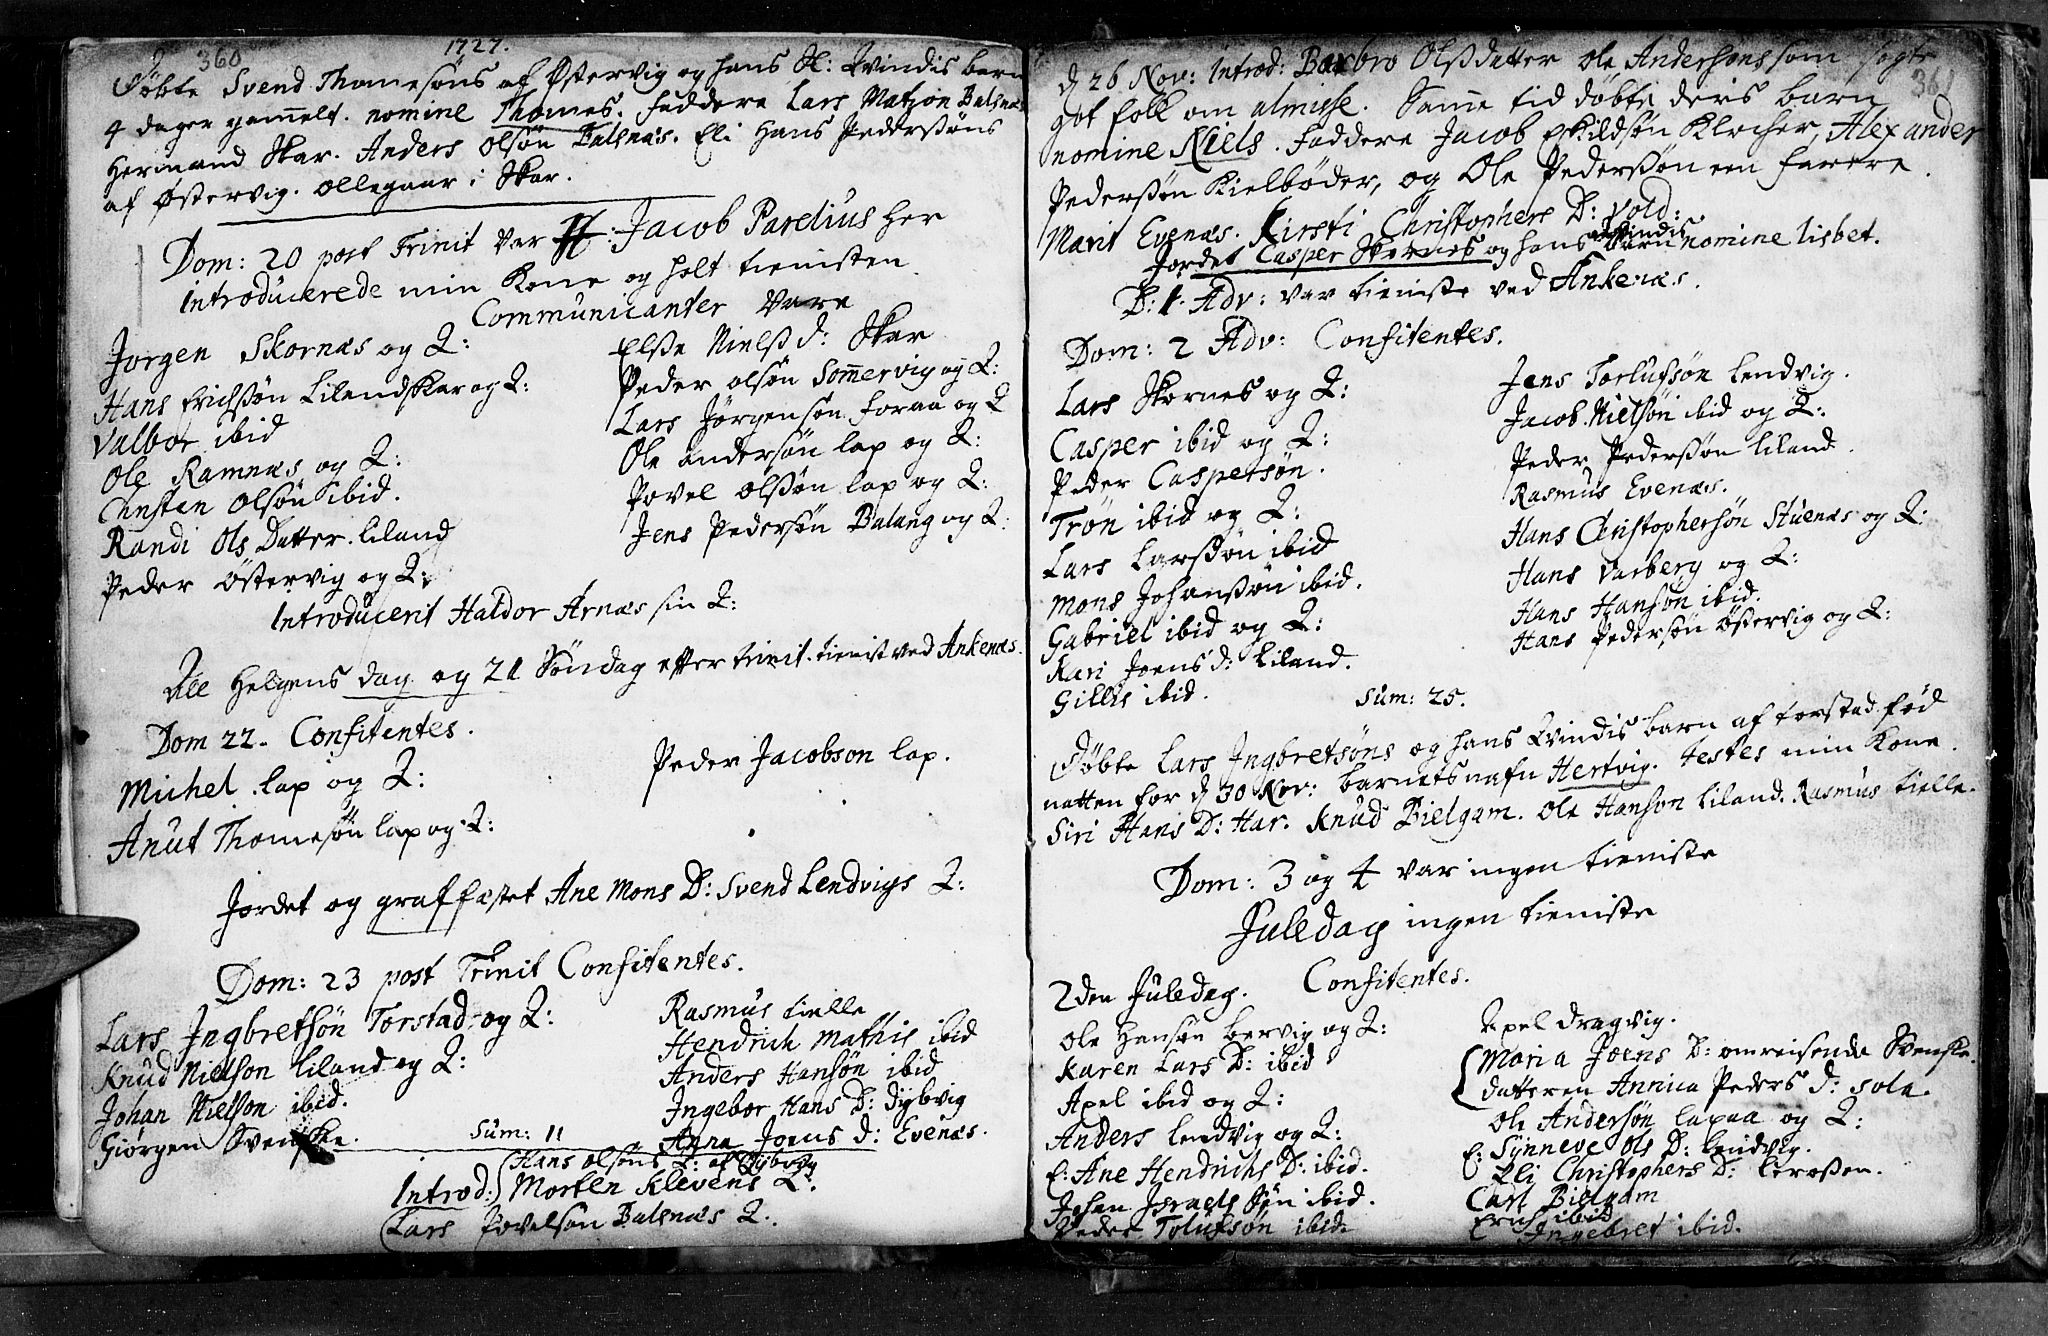 360
1727.
Döbte Svend Thomesöns af Östervig og hans Sl: Qvindis barn
4 dager gamelt. nomine Thomes. Faddere Lars Matzon Balsnæs
Hermand Skar. Anders Olsön Balsnæs. Eli Hans Pedersöns
af Östervig. Ollegaar i Skar.
Dom: 20 post Trinit var H: Jacob Parelius her
Introducerede min Kone og holt tienisten.
Communicanter vare
Jorgen Skornæs og Q:
Hans Erichsön Lilendskar og Q:
Valbor ibid
Ole Ramnæs og Q:
Christen Olsön ibid.
Randi Ols Datter. Liland
Peder Östervig og Q:
Elsse Nielss d: Skar
Peder olsön Somervig og Q:
Lars Jörgensön foraa og Q
Ole andersön lap og Q:
Povel olssön lap og Q:
Jens Pedersön Balang og Q:
Introducerit Haldor Arnæs sin Q:
Alle Helgens dag og 21 Söndag efter trinit. tienist ved Ankenæs.
Dom 22. Confitentes.
Michel lap og Q:
Anut Thomesön lap og Q:
Peder Jacobson lap.
Jordet og graffæstet Ane Mons D: Svend Lendvigs Q:
Dom: 23 post Trinit Confitentes.
Lars Jngbretsön Torstad og Q:
Knud Nielson Liland og Q:
Johan Nielson ibid.
Giörgen Svenske.
Rasmus tielle
Hendrich Mathis ibid
Anders Hansön ibid
Ingebor Hans D: Dybvig
Anna Joens d: Evenæs.
Sum: 11
Introd: Hans olsöns Q: af Dybvig
Morten Klevens Q:
Lars Povelsön Balsnæs Q:
361
d 26 Nov: Introd: Barbro Olssdatter Ole Andersöns som sögte
got folk om almisse. Same tid döbte ders barn
nomine Niels. Faddere Jacob Eskildsön Klocher, Alexander
Pederssön Kielböder, og Ole Pederssön een farere.
Marit Evenæs. Kirsti Christophers D: vold:
Jordet Casper Skornes og hans Qvindis barn nomine lisbet.
D: 1. Adv: var tieniste ved Ankenæs.
Dom: 2 Adv: Confitentes.
Lars Skornes og Q:
Casper ibid og Q:
Peder Caspersön.
Trön ibid og Q:
Lars Larssön ibid
Mons Johanssön ibid.
Gabriel ibid og Q:
Kari Joens d: Liland.
Gillis ibid.
Jens Torlufsön Lendvig.
Jacob Nielsön ibid og Q:
Peder Pederssön Liland.
Rasmus Evenæs.
Hans Christophersön Stuenæs og Q:
Hans Varberg og Q:
Hans Hansön ibid.
Hans Pedersön Östervig og Q:
Sum: 25.
Döbte Lars Jngbretsöns og hans Qvindis barn af torstad föd
natten for d 30 Nov: barnets nafn Hertvig. Testes min Kone.
Siri Hans D: Har. Knud Bielgam. Ole Hanson Liland. Rasmus tielle.
Dom: 3 og 4 var ingen tieniste
Juledag ingen tieniste
2den Juledag. Confitentes.
Ole Hansön Bervig og Q:
Karen Lars D: ibid
Axel ibid og Q:
Anders Lendvig og Q:
E: Ane Hendrichs D: ibid.
Johan Jsraels Sön ibid.
Peder Tolufsön ibid.
Axel dragvig.
Maria Joens D: omreisende Svenske.
datteren Annica Peders d: sola.
Ole Andersön lapaa og Q:
E: Synneve Ols D: Lendvig.
Eli Christophers D: Lerossen.
Carl Bielgam
Erich ibid
Jngebret ibid.